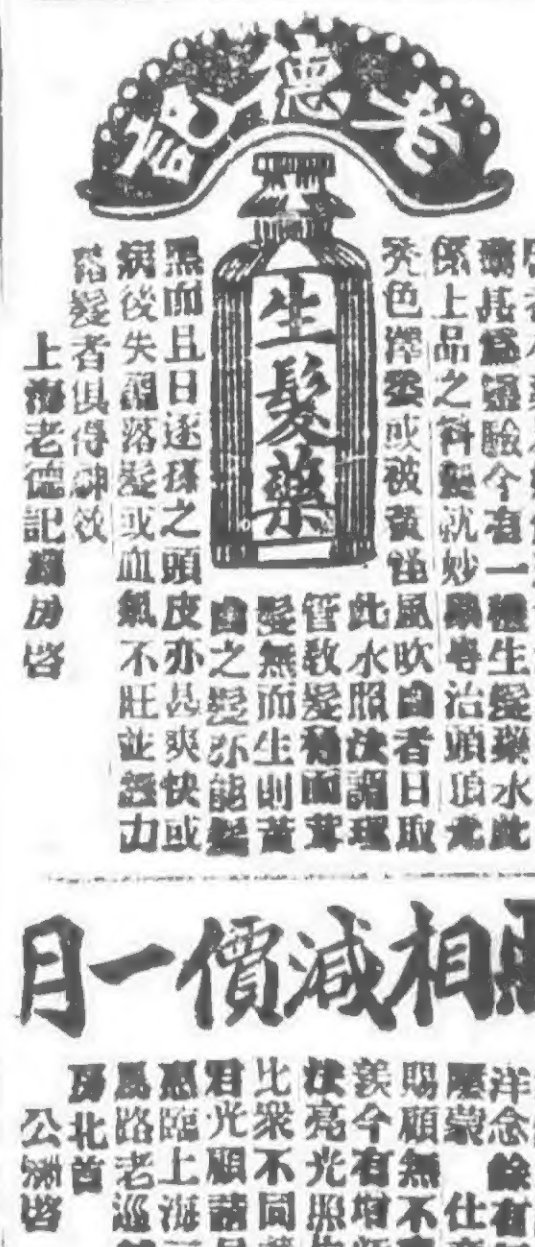 老德記
生髮藥
甚為靈驗今有一種生髮藥水此
係上品之料製就妙藥專治頭頂尤
禿色澤變或被黃怪風吹曲者日取
此水照法調理
管教髮稍而茸
髮無而生則黃
曲之髮亦能變
黑而且日逐搽之頭皮亦甚爽快或
病後失調落髮或血氣不旺並力
落髮者俱得神效
上海老德記藥房啓
照相減價一月
洋念餘有
屢蒙仕
賜顧無不
羨今有增新
快亮光照
比衆不同
君光顧請
惠臨上海
馬路老巡
房北首
公啓